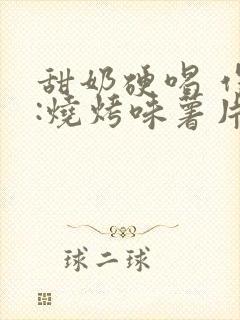 甜奶硬唱
:燒烤味薯片
球二球